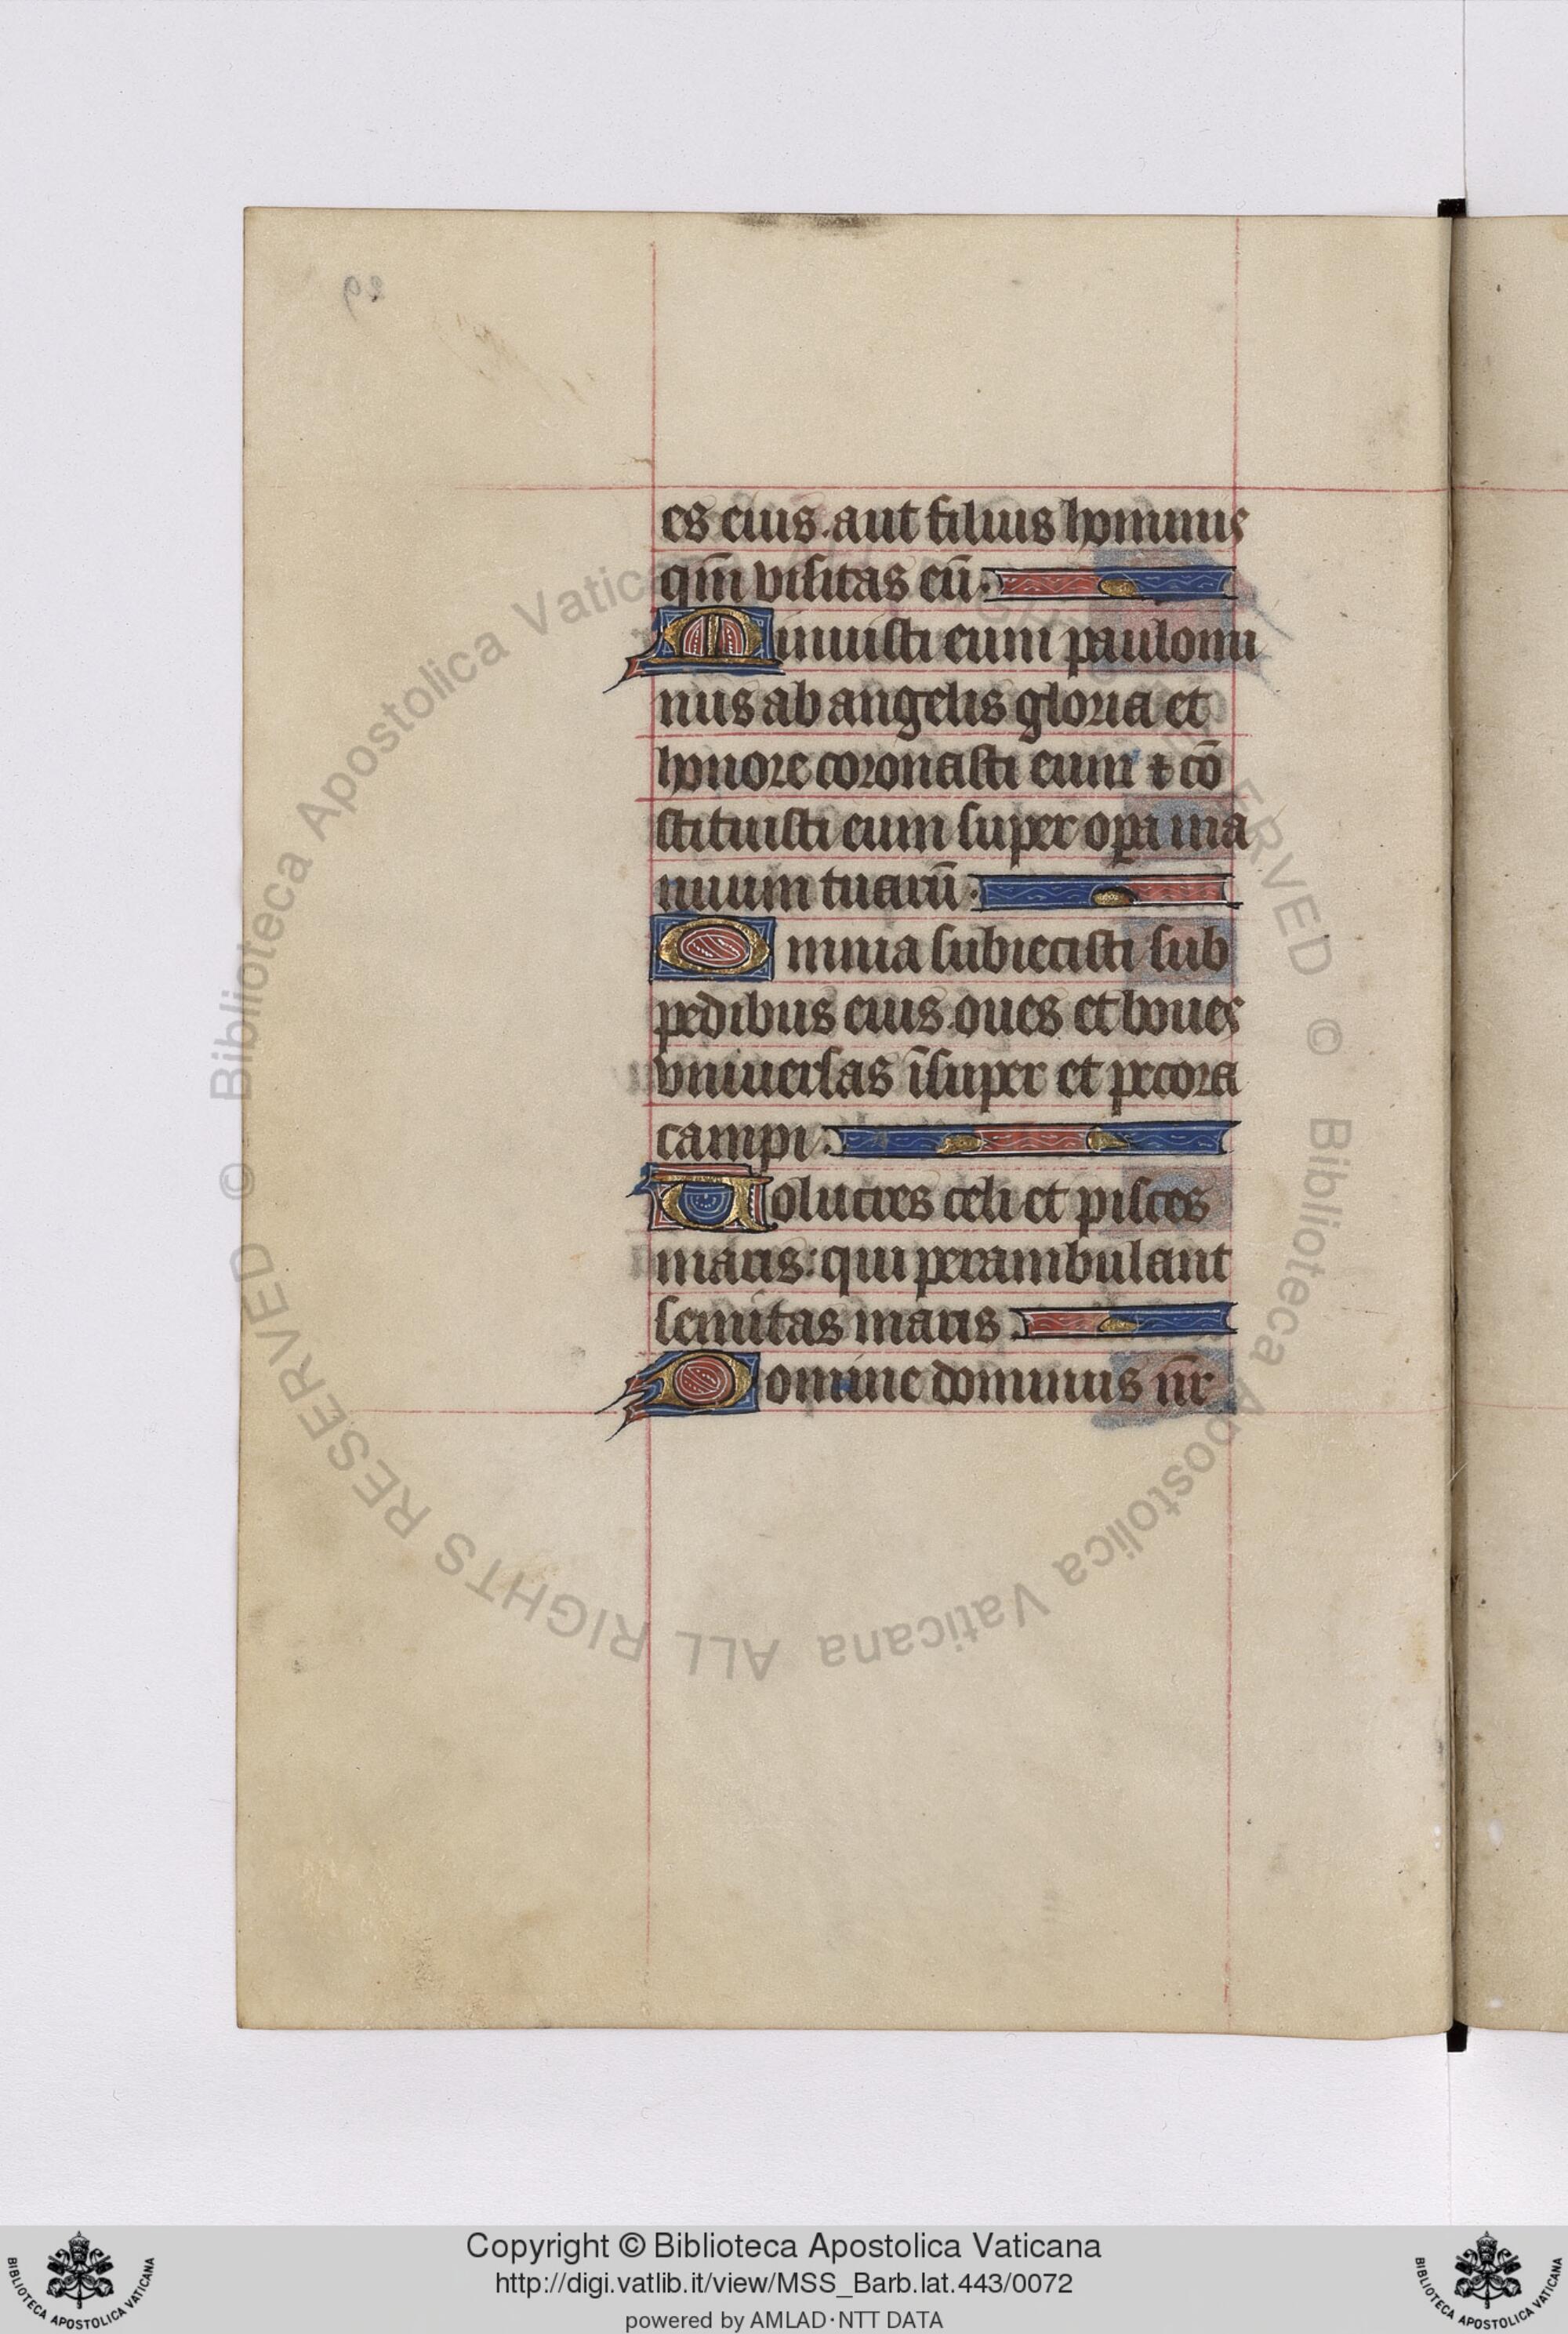 es eius. aut filius hominis
qm̅ visitas eu̅.
Minuisti eum paulomi
nus ab angelis gloria et
honore coronasti eum ⁊ co̅
stituisti eum super oꝑa ma
nuum tuaru̅.
Omnia subiecisti sub
pedibus eius. oues et boues
vniuersas i̅super et pecora
campi.
Volucres celi et pisces
maris: qui perambulant
semitas maris.
Domine dominus nr̅
© Biblioteca Apostolica Vaticana ALL RIGHTS RESERVED
Copyright © Biblioteca Apostolica Vaticana
http://digi.vatlib.it/view/MSS_Barb.lat.443/0072
powered by AMLAD·NTT DATA
BIBLIOTECA APOSTOLICA VATICANA
BIBLIOTECA APOSTOLICA VATICANA